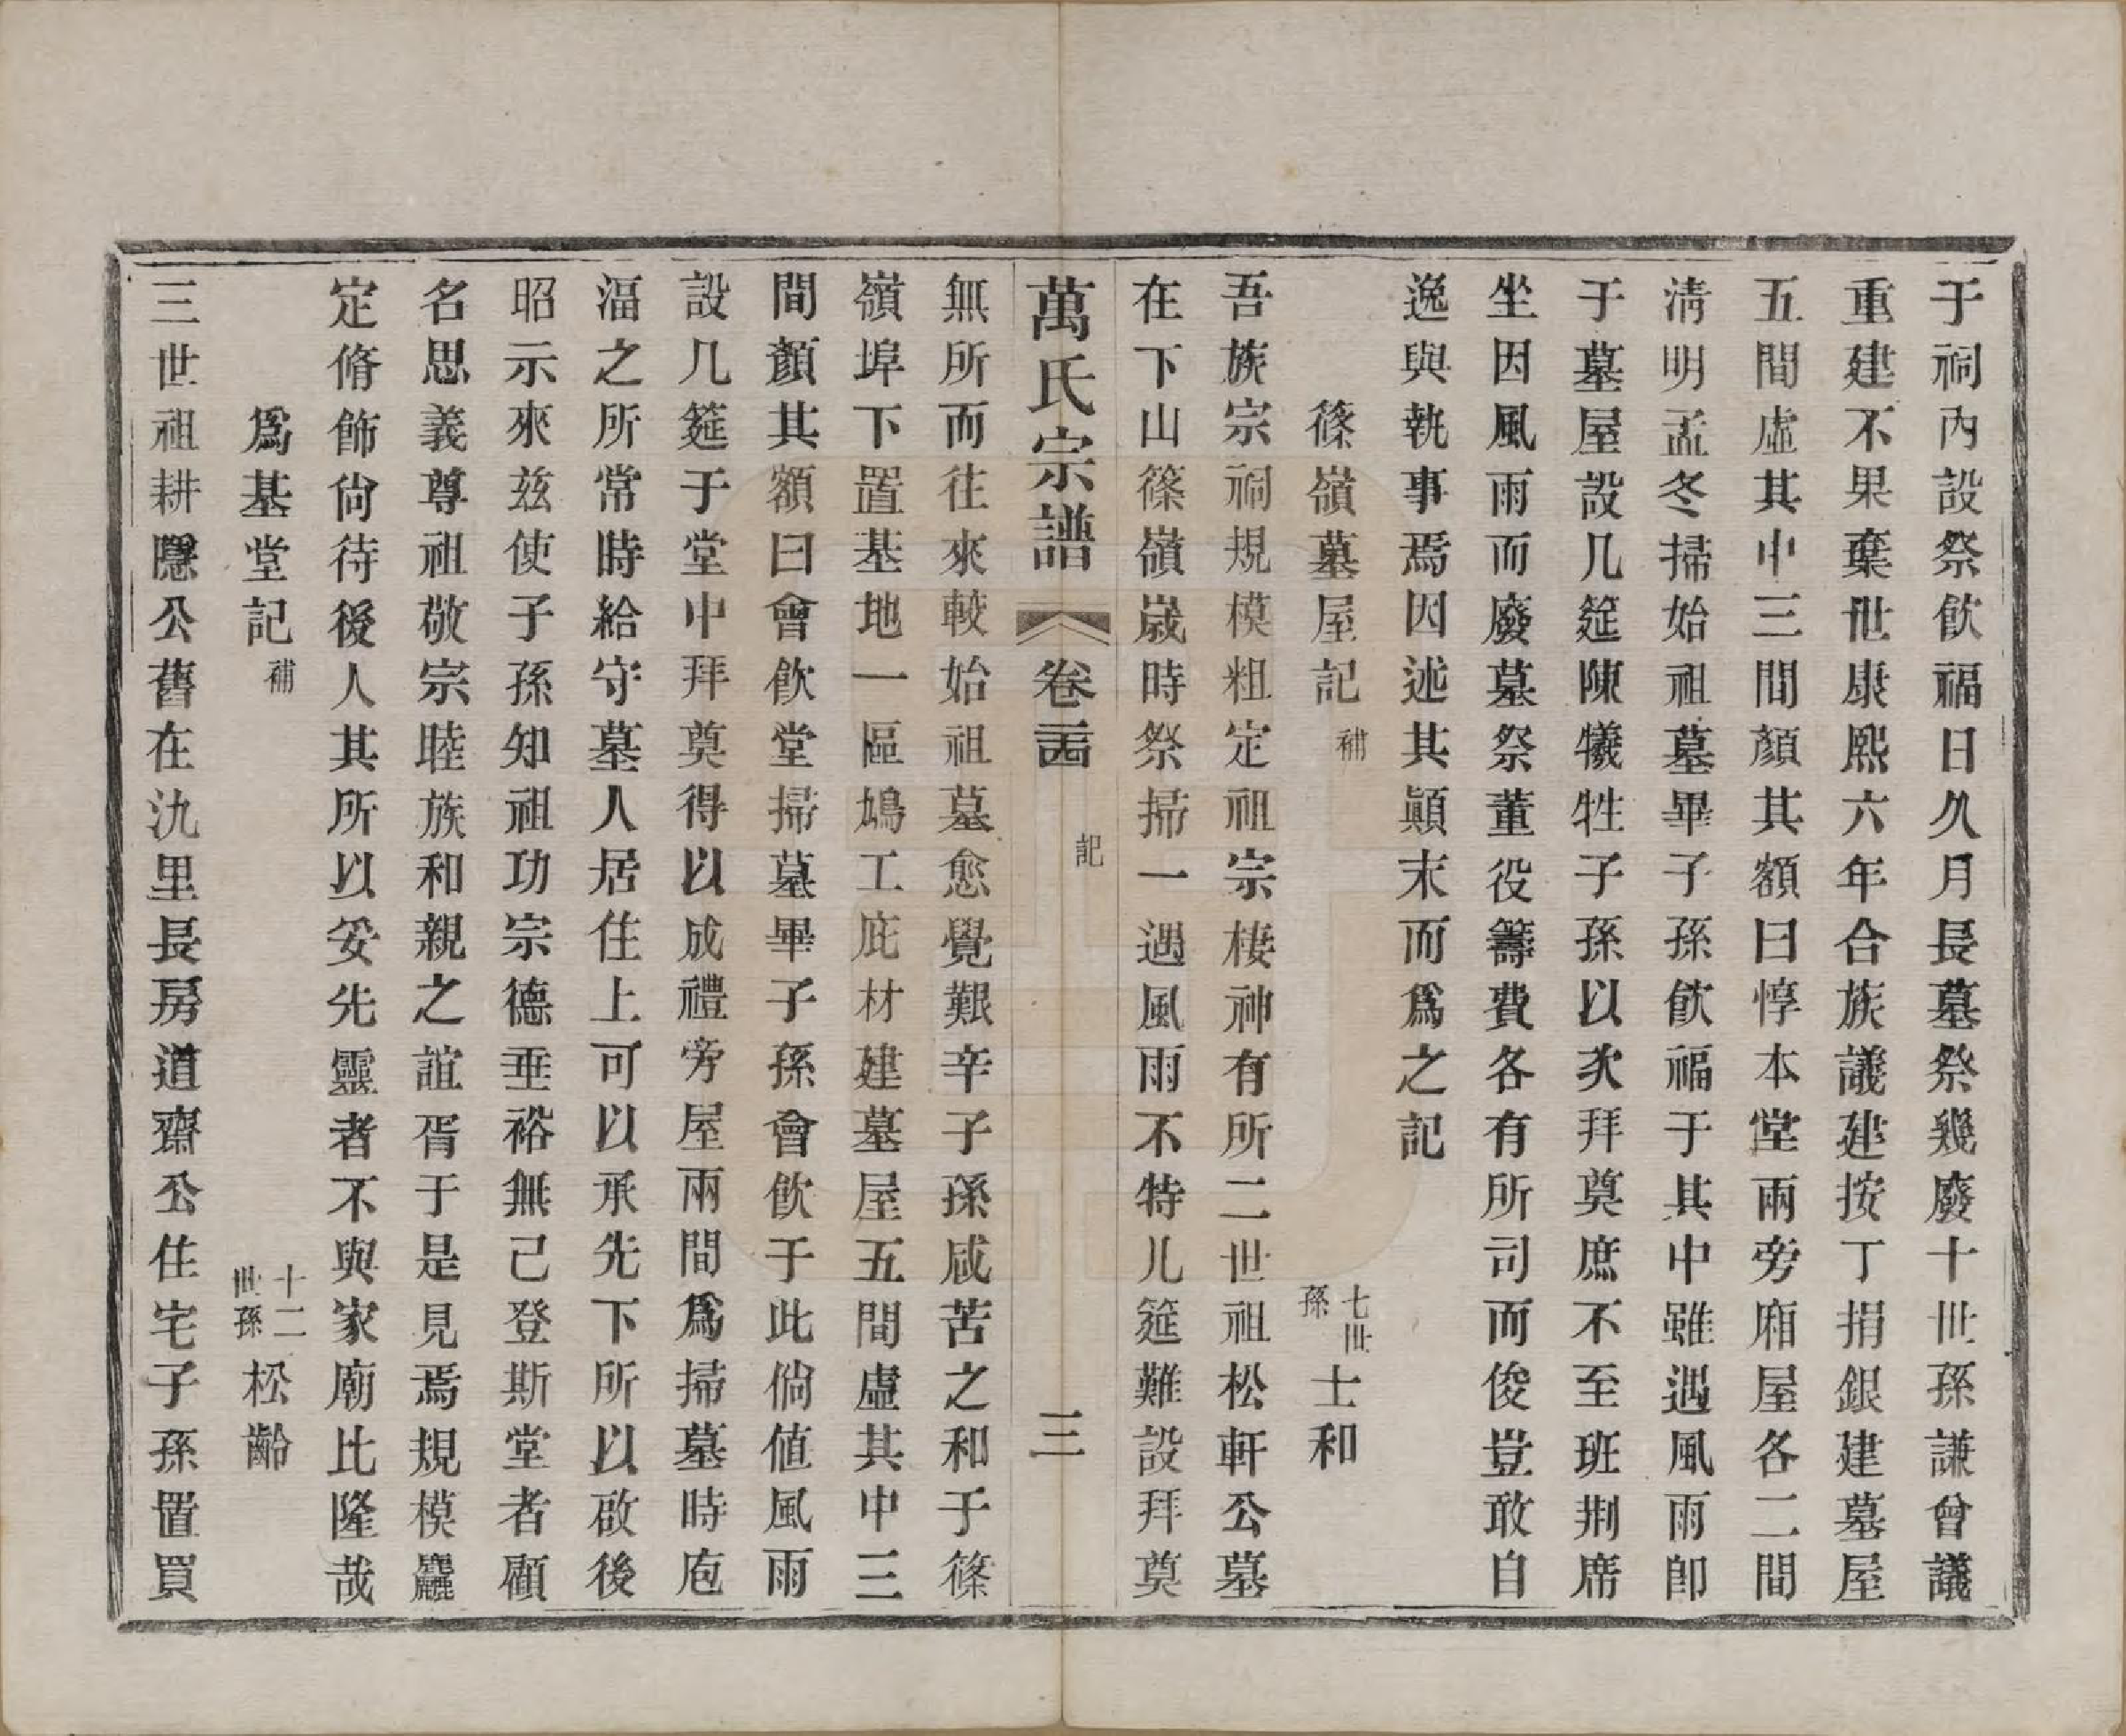 于祠內設祭飲福日久月長墓祭幾廢十世孫謙曾議
重建不果棄世康熙六年合族議建按丁捐銀建墓屋
五間虛其中三間顏其額曰惇本堂兩旁廂屋各二間
淸明孟冬掃始祖墓畢子孫飮福于其中雖遇風雨卽
于墓屋設几筵陳犧牲子孫以次拜奠庶不至班荆席
坐因風雨而廢墓祭董役籌費各有所司而俊豈敢自
逸與執事焉因述其顚末而爲之記
篠嶺墓屋記 補 七世孫 士和
吾族宗祠規模粗定祖宗棲神有所二世祖松軒公墓
在下山篠嶺歲時祭掃一遇風雨不特几筵難設拜奠
萬氏宗譜 卷二十四 記 三
無所而往來較始祖墓愈覺艱辛子孫咸苦之和于篠
嶺埠下置基地一區鳩工庇材建墓屋五間虛其中三
間顏其額曰會飮堂掃墓畢子孫會飮于此倘値風雨
設几筵于堂中拜奠得以成禮旁屋兩間爲掃墓時庖
湢之所常時給守墓人居住上可以承先下所以啟後
昭示來玆使子孫知祖功宗德垂裕無己登斯堂者顧
名思義尊祖敬宗睦族和親之誼胥于是見焉規模麤
定脩飾尙待後人其所以妥先靈者不與家廟比隆哉
爲基堂記 補 十二世孫 松齡
三世祖耕隱公舊在氿里長房道齋公住宅子孫置買